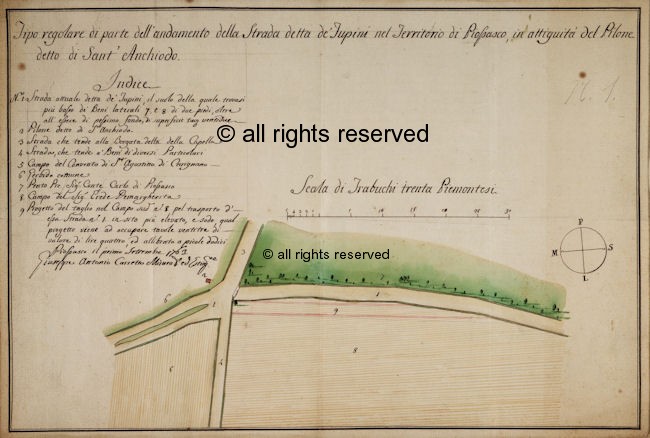 Tipo regolare di parte dell'andamento della Strada detta de' Tupini nel Territorio di Piossasco, in attiguità del Pilone
detto di Sant' Anchiodo.
Indice
N.º 1 Strada attuale detta de' Tupini, il suolo della quale trovasi
più basso di Beni laterali 7, e 8 di due piedi, oltre
all' essere di pessimo fondo, di superficie tav. ventidue
2 Pilone detto di S.t Anchiodo
3 Strada che tende alla Borgata della della Capella
4 Strada, che tende a' Beni di diversi Particolari
5 Campo del Convento di S.t Agostino di Carignano
6 Gerbido comune
7 Prato Sig. Conte Carlo di Piossasco
8 Campo del Sig.
9 Progetto del taglio nel Campo sud.º n.º 8 pel trasporto d'
essa Strada n.º 1 in sito più elevato, e sodo, qual
progetto viene ad occupare tavole ventitre di
valore di lire quattro, ed
Piossasco il primo Settembre 1763
Giuseppe Antonio
© all rights reserved
Scala di Trabuchi trenta Piemontesi
© all rights reserved
P
M S
L
3
2
6
1
1
9
8
6
4